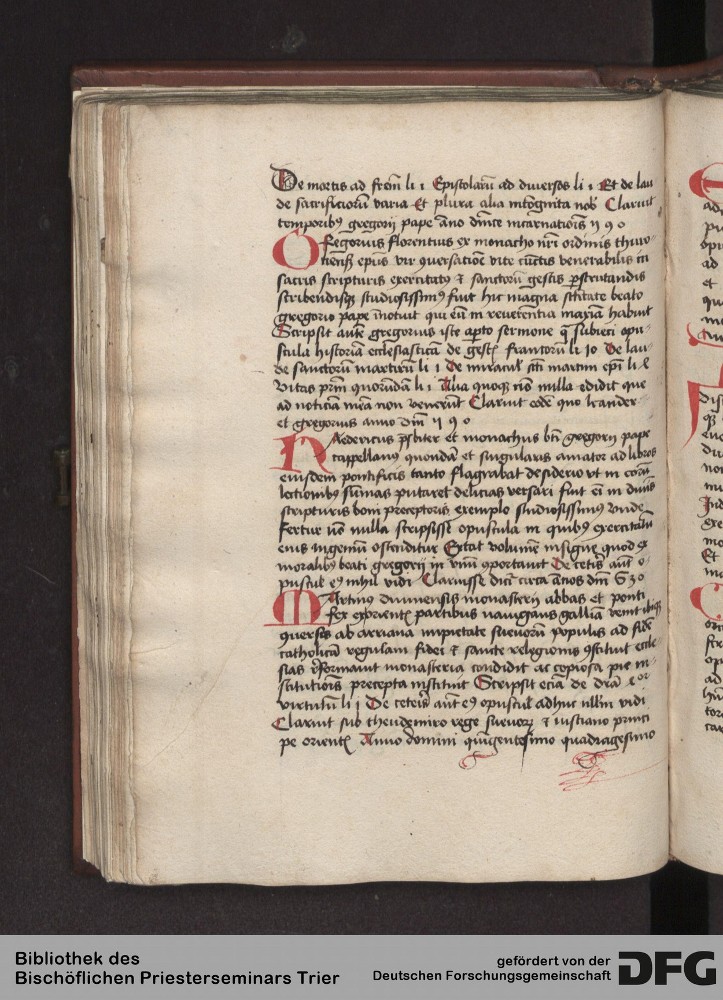 De mortis ad frem̄ li 1 Epistolarū ad diuersos li 1 Et de lau
de sacrificiorū varia Et plura alia incognita nob Claruit
temporibꝰ gregorij pape año dn̄ice incarnationis
Gregorius florentius ex monacho nr̄i ordinis thuro
nens̄ epūs vir ꝯuersatiōe vite cūctis venerabilis in
sacris scripturis exercitatꝰ ⁊ sanctorū gestis ꝑscrutandis
scribendisqꝫ studiosissimꝰ fuit hic magna sc̄titate beato
gregorio pape īnotuit qui eū in reuerentia maxīa habuit
Scripsit autē gregorius iste aperto sermone q̄ subieci opu
scula historiā ecclesiasticā de gestꝭ francorū li 10 De lau
de sanctorū martirū li 1 De miracul sc̄ti martini ep̄i li
Vitas prm̄ quorūdā li 1 Alia quoqꝫ nō nulla edidit que
ad noticiā meā non venerūt Claruit eodē quo leander
et gregorius anno dn̄i
aedericus pr̄sbiter et monachus bt̄i gregorij pape
cappellanus quondā et singularis amator ad libros
eiusdem pontificis tanto flagrabat desiderio vt in eorū
lectionibꝰ sūmas putaret delicias versari fuit em̄ in diuīs
scripturis boni preceptoris exemplo studiosissimꝰ vnde
fertur nō nulla scripsisse opuscula in quibꝰ exercitatū
eius ingeniū ostenditur Extat volumē insigne quod ex
moralibꝰ beati gregorij in vnū ꝯportauit De cetis aūt o
puscul eꝰ nihil vidi Claruisse dicit̄ circa ānos dn̄i 630
Martinꝰ dumiensis monasterij abbas et ponti
fex ex orientꝭ partibus nauigans galliā venit
ꝯuersis ab arriana impietate sueuorū populis ad fidē
catholicā regulam fidei et sancte relegionis ꝯstituit eccle
sias reformauit monasteria condidit ac copiosa pie in
stitutiōis precepta instituit Scripsit eciā de dr̄a
virtutū li 1 De ceteris aūt eꝰ opuscul adhuc nllm̄ vidi
Claruit sub theudemiro rege sueuorꝫ ⁊ iustiano princi
pe orientꝭ Anno domini quīgentesimo quadragesimo
Bibliothek des
Bischöflichen Priesterseminars Trier
gefördert von der
Deutschen Forschungsgemeinschaft
DFG